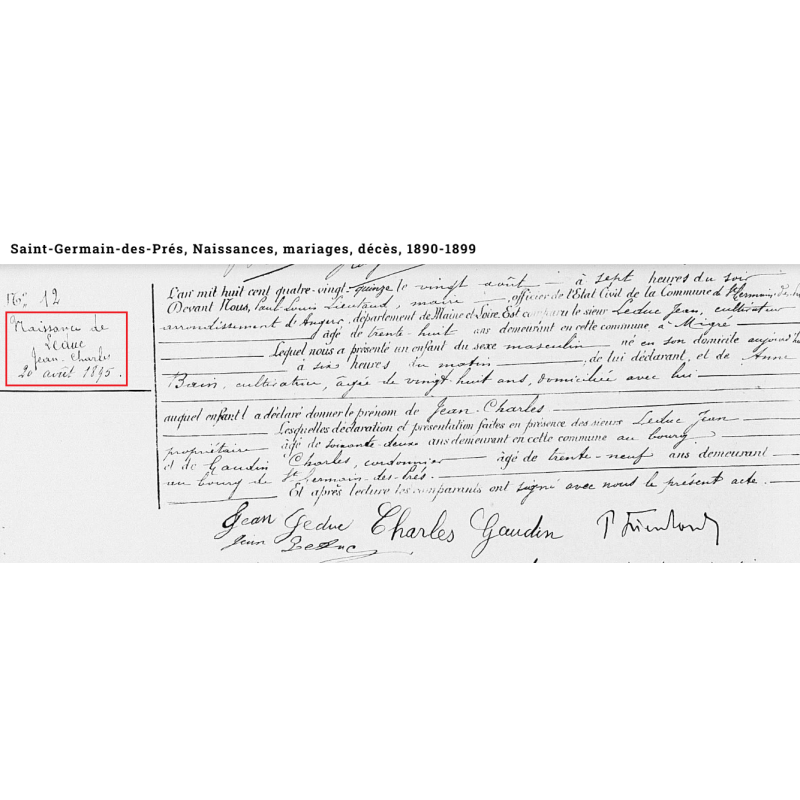 Saint-Germain-des-Prés, Naissances, mariages, décès, 1890-1899
N° 12
Naissance de
Leduc
Jean-Charles
20 août 1895.
L'an mil huit cent quatre-vingt-quinze le vingt août à sept heures du soir
Devant Nous, Paul Louis Lieutaud, maire, officier de l'Etat Civil de la Commune de St Germain-des-Prés
arrondissement d'Angers, département de Maine et Loire. Est comparu le sieur Leduc Jean, cultivateur
âgé de trente-huit ans demeurant en cette commune à Migré
Lequel nous a présenté un enfant du sexe masculin né en son domicile aujourd'hui
à six heures du matin, de lui déclarant, et de Anne
Bain, cultivatrice, âgée de vingt-huit ans, domiciliée avec lui
auquel enfant l a déclaré donner le prénom de Jean-Charles
Lesquelles déclaration et présentation faites en présence des sieurs Leduc Jean
propriétaire âgé de soixante-deux ans demeurant en cette commune au bourg
et de Gaudin Charles, cordonnier âgé de trente-neuf ans demeurant
au bourg de St Germain-des-Prés.
Et après lecture les comparants ont signé avec nous le présent acte.
Jean Leduc Charles Gaudin
Jean Leduc